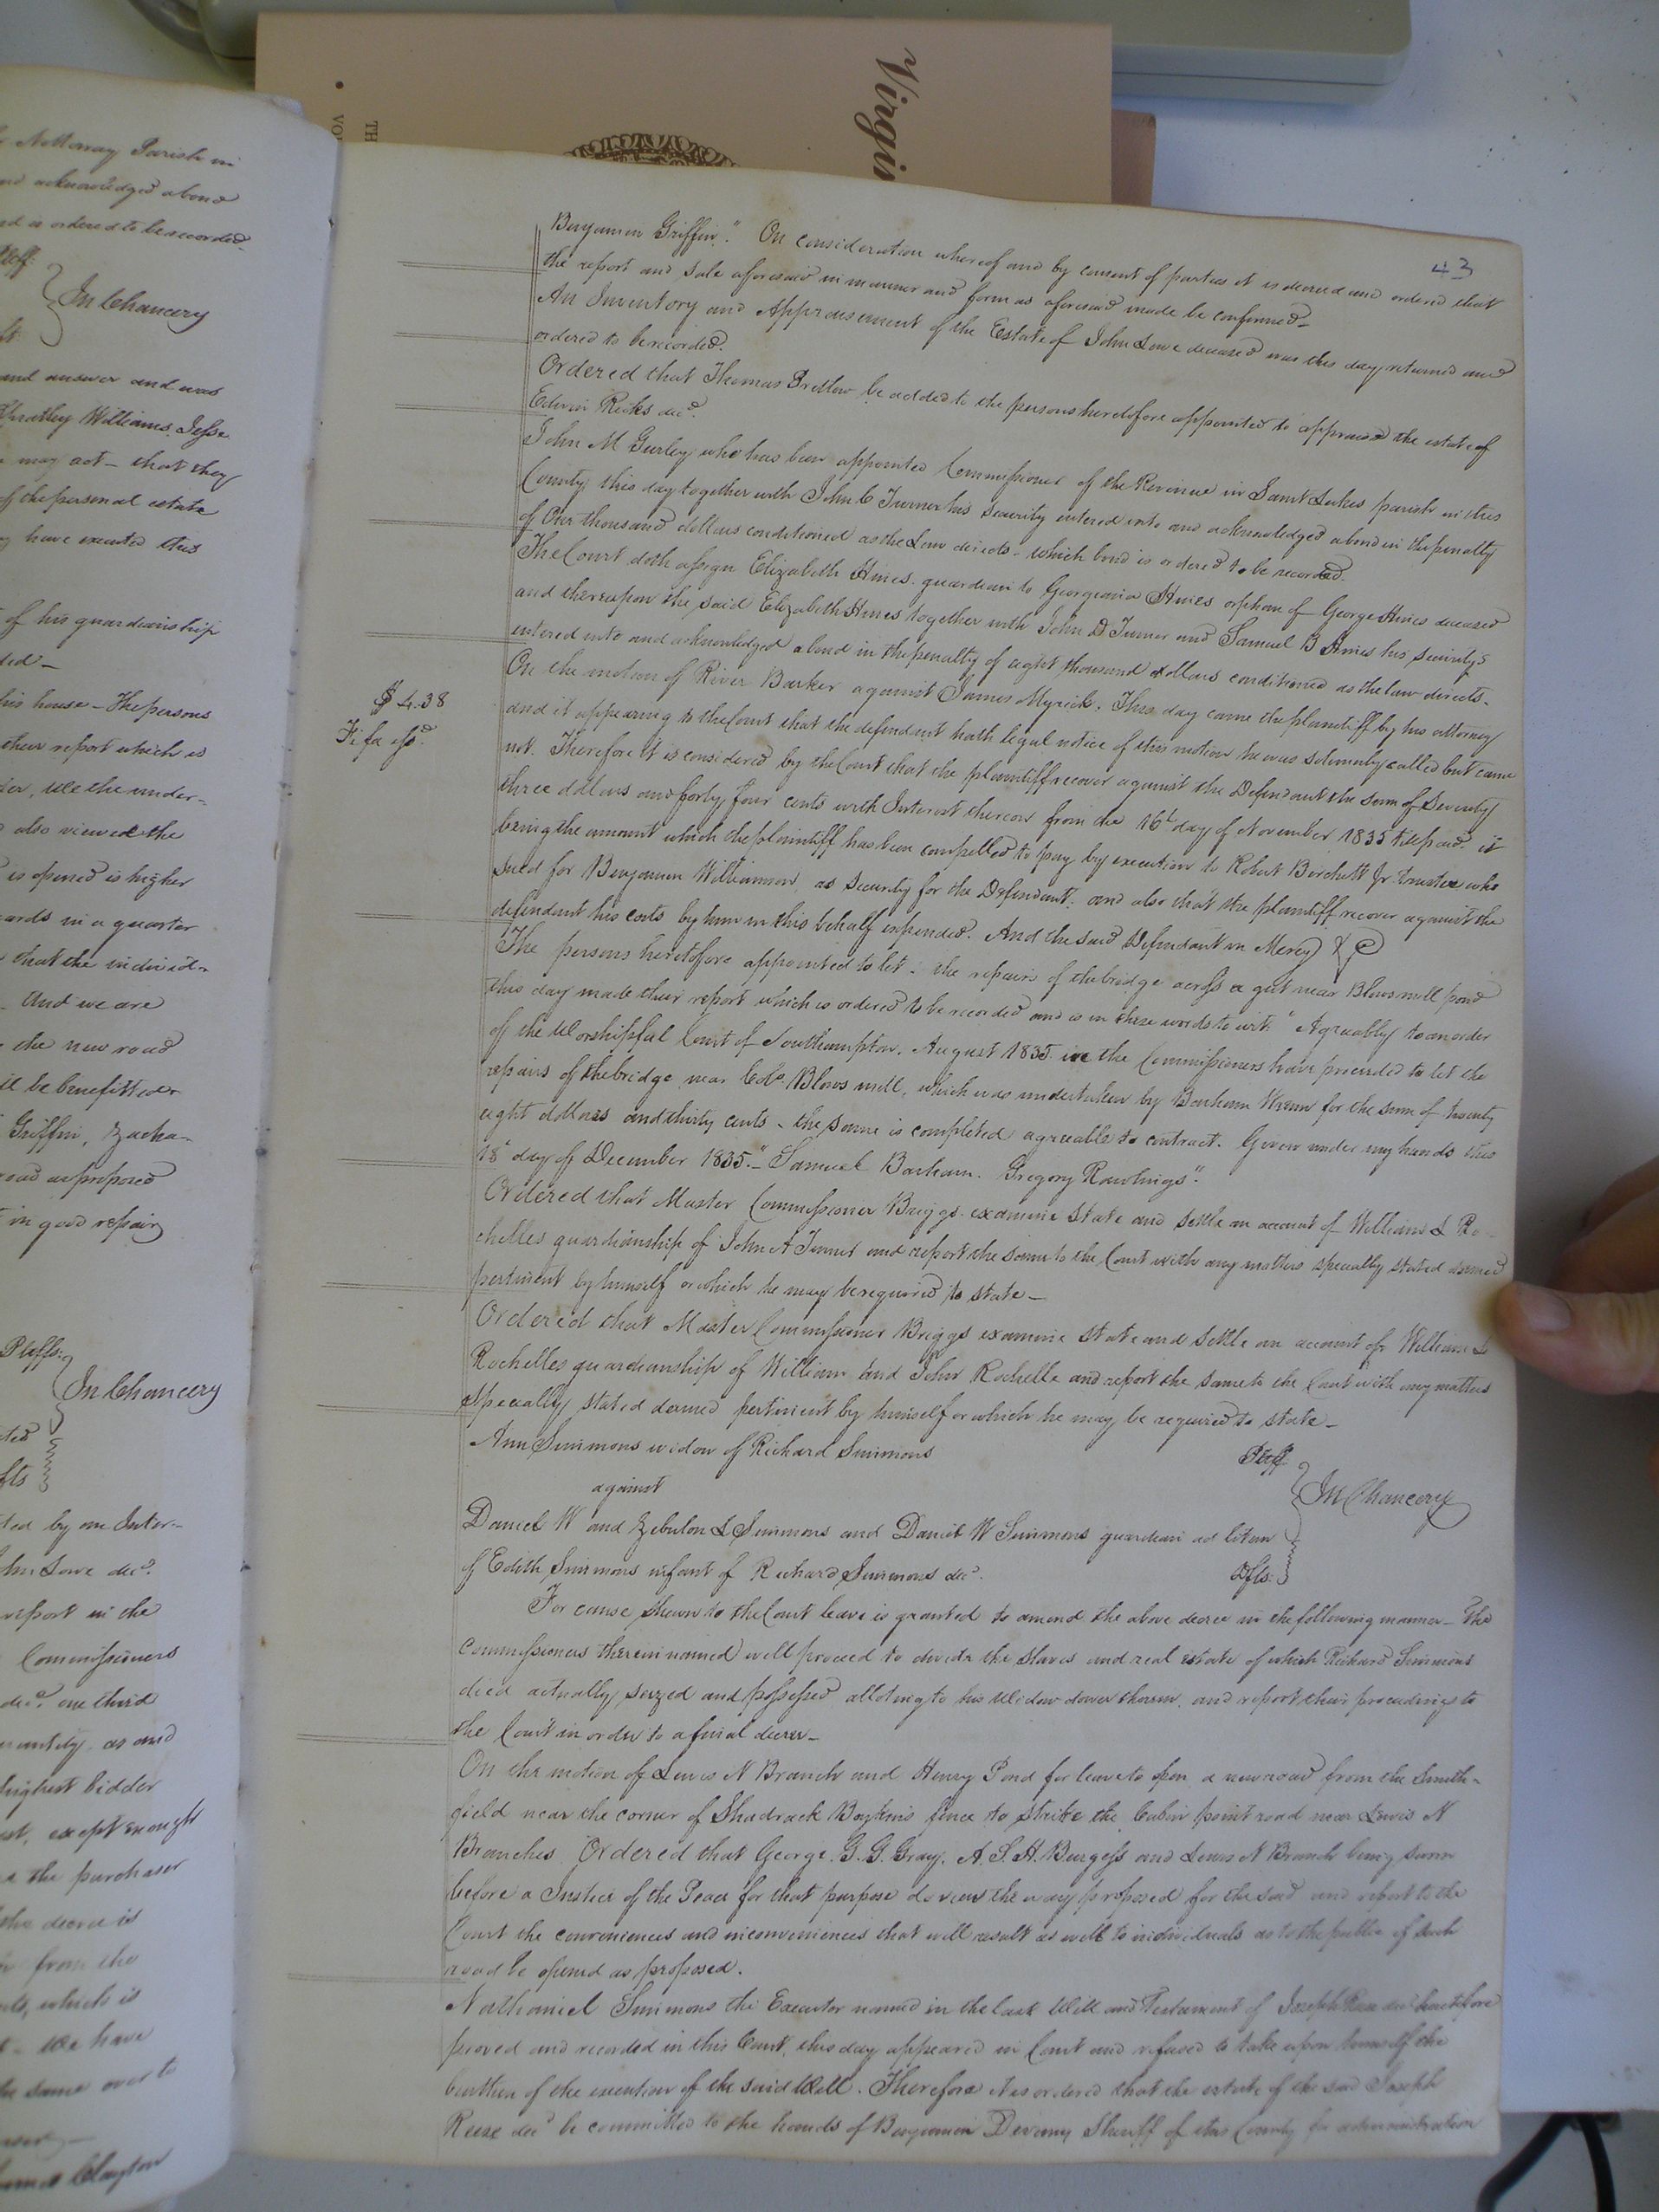 Virgi
TH
VO
43
Nottoway Parish in
acknowledged a bond
is ordered to be recorded
In Chancery
and answer and was
Williams, Jesse
may act – that they
of the personal estate
have executed this
of his guardianship
his house – The persons
their report which is
We the under-
also viewed the
is opened is higher
in a quarter
that the individ-
And we are
the new road
be benefitted
Griffin, Zacha-
road as proposed
in good repair
Plffs.
In Chancery
by an Inter-
Lowe decd.
report in the
Commissioners
decd. one third
as and
highest bidder
except enough
the purchaser
the decree is
from the
which is
We have
the same over to
Clayton
Benjamin Griffin." On consideration whereof and by consent of parties it is decreed and ordered that
the report and sale aforesaid in manner and form as aforesaid made be confirmed –
An Inventory and Appraisement of the Estate of John Lowe deceased was this day returned and
ordered to be recorded.
Ordered that Thomas Pretlow be added to the persons heretofore appointed to appraise the estate of
Edwin Ricks decd.
John M Gurley who has been appointed Commissioner of the Revenue in Saint Lukes parish in this
County this day together with John C Turner his security entered into and acknowledged a bond in the penalty
of One thousand dollars conditioned as the Law directs – which bond is ordered to be recorded.
The Court doth assign Elizabeth Hines guardian to Georgeania Hines orphan of George Hines deceased
and thereupon the said Elizabeth Hines together with John D Turner and Samuel B Hines his securitys
entered into and acknowledged a bond in the penalty of eight thousand dollars conditioned as the law directs.
$4.38
Fi fa issd.
On the motion of River Barker against James Myrick. This day came the plaintiff by his attorney
and it appearing to the Court that the defendant hath legal notice of this motion he was solemnly called but came
not. Therefore it is considered by the Court that the plaintiff recover against the Defendant the sum of Seventy
three dollars and forty four cents with Interest thereon from the 16th day of November 1835 till paid it
being the amount which the plaintiff has been compelled to pay by execution to Robert Birchett Jr trustee who
sued for Benjamin Williamson, as security for the Defendant, and also that the plaintiff recover against the
defendant his costs by him in this behalf expended. And the said Defendant in Mercy &c
The persons heretofore appointed to let the repairs of the bridge across a gut near Blows mill pond
this day made their report which is ordered to be recorded and is in these words to wit: "Agreeably to an order
of the Worshipful Court of Southampton, August 1835 we the Commissioners have proceeded to let the
repairs of the bridge near Colo. Blows mill, which was undertaken by Barham Wrenn for the sum of twenty
eight dollars and thirty cents – the same is completed agreeable to contract. Given under my hands this
18th day of December 1835." – Samuel Barham. Gregory Rawlings".
Ordered that Master Commissioner Briggs examine state and settle an account of William L Ro-
chelles guardianship of John A Turner and report the same to the Court with any matters specially stated deemed
pertinent by himself or which he may be required to state –
Ordered that Master Commissioner Briggs examine state and settle an account of William L
Rochelles guardianship of William and John Rochelle and report the same to the Court with any matters
specially stated deemed pertinent by himself or which he may be required to state –
Ann Simmons widow of Richard Simmons Plff.
against
In Chancery
Daniel W and Zebulon L Simmons and Daniel W Simmons guardian ad litem
of Edith Simmons infant of Richard Simmons decd. Dfts.
For cause shewn to the Court leave is granted to amend the above decree in the following manner – The
commissioners therein named will proceed to divide the slaves and real estate of which Richard Simmons
died actually seized and possessed alloting to his Widow dower therein, and report their proceedings to
the Court in order to a final decree –
On the motion of Lewis N Branch and Henry Pond for leave to open a new road from the Smith-
field near the corner of Shadrack Boykins fence to strike the Cabin point road near Lewis N
Branches. Ordered that George G. G. Gray, A. S. H. Burgess and Lewis N Branch being sworn
before a Justice of the Peace for that purpose do view the way proposed for the said and report to the
Court the conveniences and inconveniences that will result as well to individuals as to the public if such
road be opened as proposed.
Nathaniel Simmons the Executor named in the last Will and Testament of Joseph Reese decd heretofore
proved and recorded in this Court, this day appeared in Court and refused to take upon himself the
burthen of the execution of the said Will. Therefore it is ordered that the estate of the said Joseph
Reese decd be committed to the hands of Benjamin Devany Sheriff of this County for administration